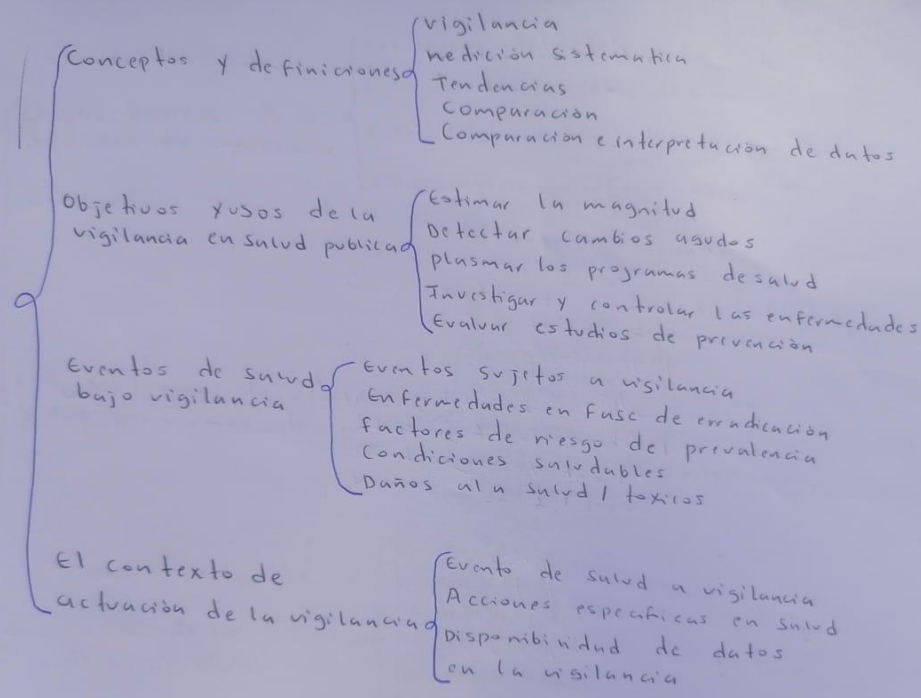 Conceptos y definiciones
vigilancia
medición sistematica
Tendencias
Comparación
Comparación e interpretación de datos
Objetivos y usos de la
vigilancia en salud publica
Estimar la magnitud
Detectar cambios agudos
plasmar los programas de salud
Investigar y controlar las enfermedades
Evaluar estudios de prevención
Eventos de salud
bajo vigilancia
Eventos sujetos a vigilancia
Enfermedades en fase de erradicación
factores de riesgo de prevalencia
Condiciones saludables
Daños al a salud / toxicos
El contexto de
actuación de la vigilancia
Evento de salud a vigilancia
Acciones especificas en salud
Disponibinidad de datos
en la vigilancia